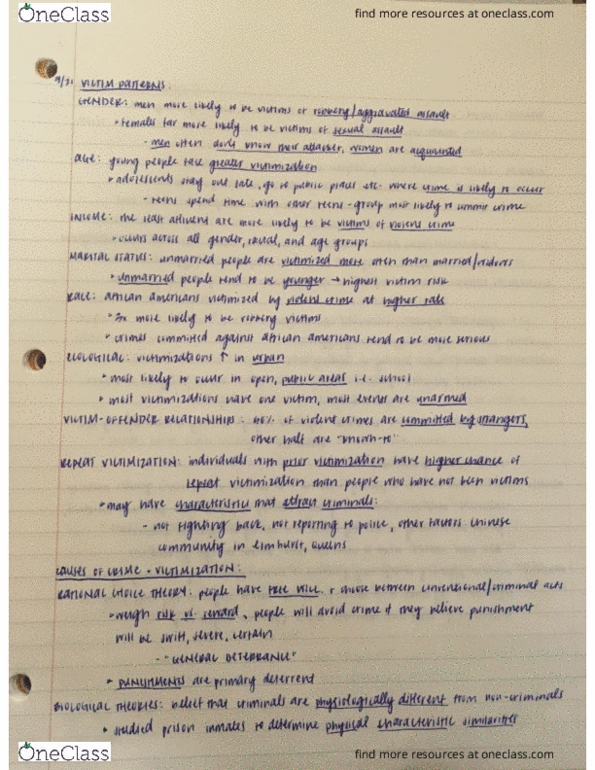 OneClass
find more resources at oneclass.com
9/21 VICTIM PATTERNS:
GENDER: men more likely to be victims of robbery/aggravated assault
• females far more likely to be victims of sexual assault
- men often don't know their attacker, women are acquainted
AGE: young people face greater victimization
• adolescents stay out late, go to public places etc. where crime is likely to occur
- teens spend time with other teens - group most likely to commit crime
INCOME: the least affluent are more likely to be victims of violent crime
• occurs across all gender, racial, and age groups
MARITAL STATUS: unmarried people are victimized more often than married/widows
• unmarried people tend to be younger → highest victim risk
RACE: african americans victimized by violent crime at higher rate
• 3x more likely to be robbery victims
• crimes committed against african americans tend to be more serious
ECOLOGICAL: victimizations ↑ in urban
• most likely to occur in open, public areas i.e. school
• most victimizations have one victim, most events are unarmed
VICTIM-OFFENDER RELATIONSHIPS: 40% of violent crimes are committed by strangers,
other half are "known-to"
REPEAT VICTIMIZATION: individuals with prior victimization have higher chance of
repeat victimization than people who have not been victims
• may have characteristic that attract criminals:
- not fighting back, not reporting to police, other factors: chinese
community in elmhurst, queens
CAUSES OF CRIME + VICTIMIZATION:
RATIONAL CHOICE THEORY: people have free will + choose between conventional/criminal acts
• weigh risk vs. reward, people will avoid crime if they believe punishment
will be swift, severe, certain
- "GENERAL DETERRANCE"
• PUNISHMENTS are primary deterrent
BIOLOGICAL THEORIES: belief that criminals are physiologically different from non-criminals
• studied prison inmates to determine physical characteristic similarities
OneClass
find more resources at oneclass.com